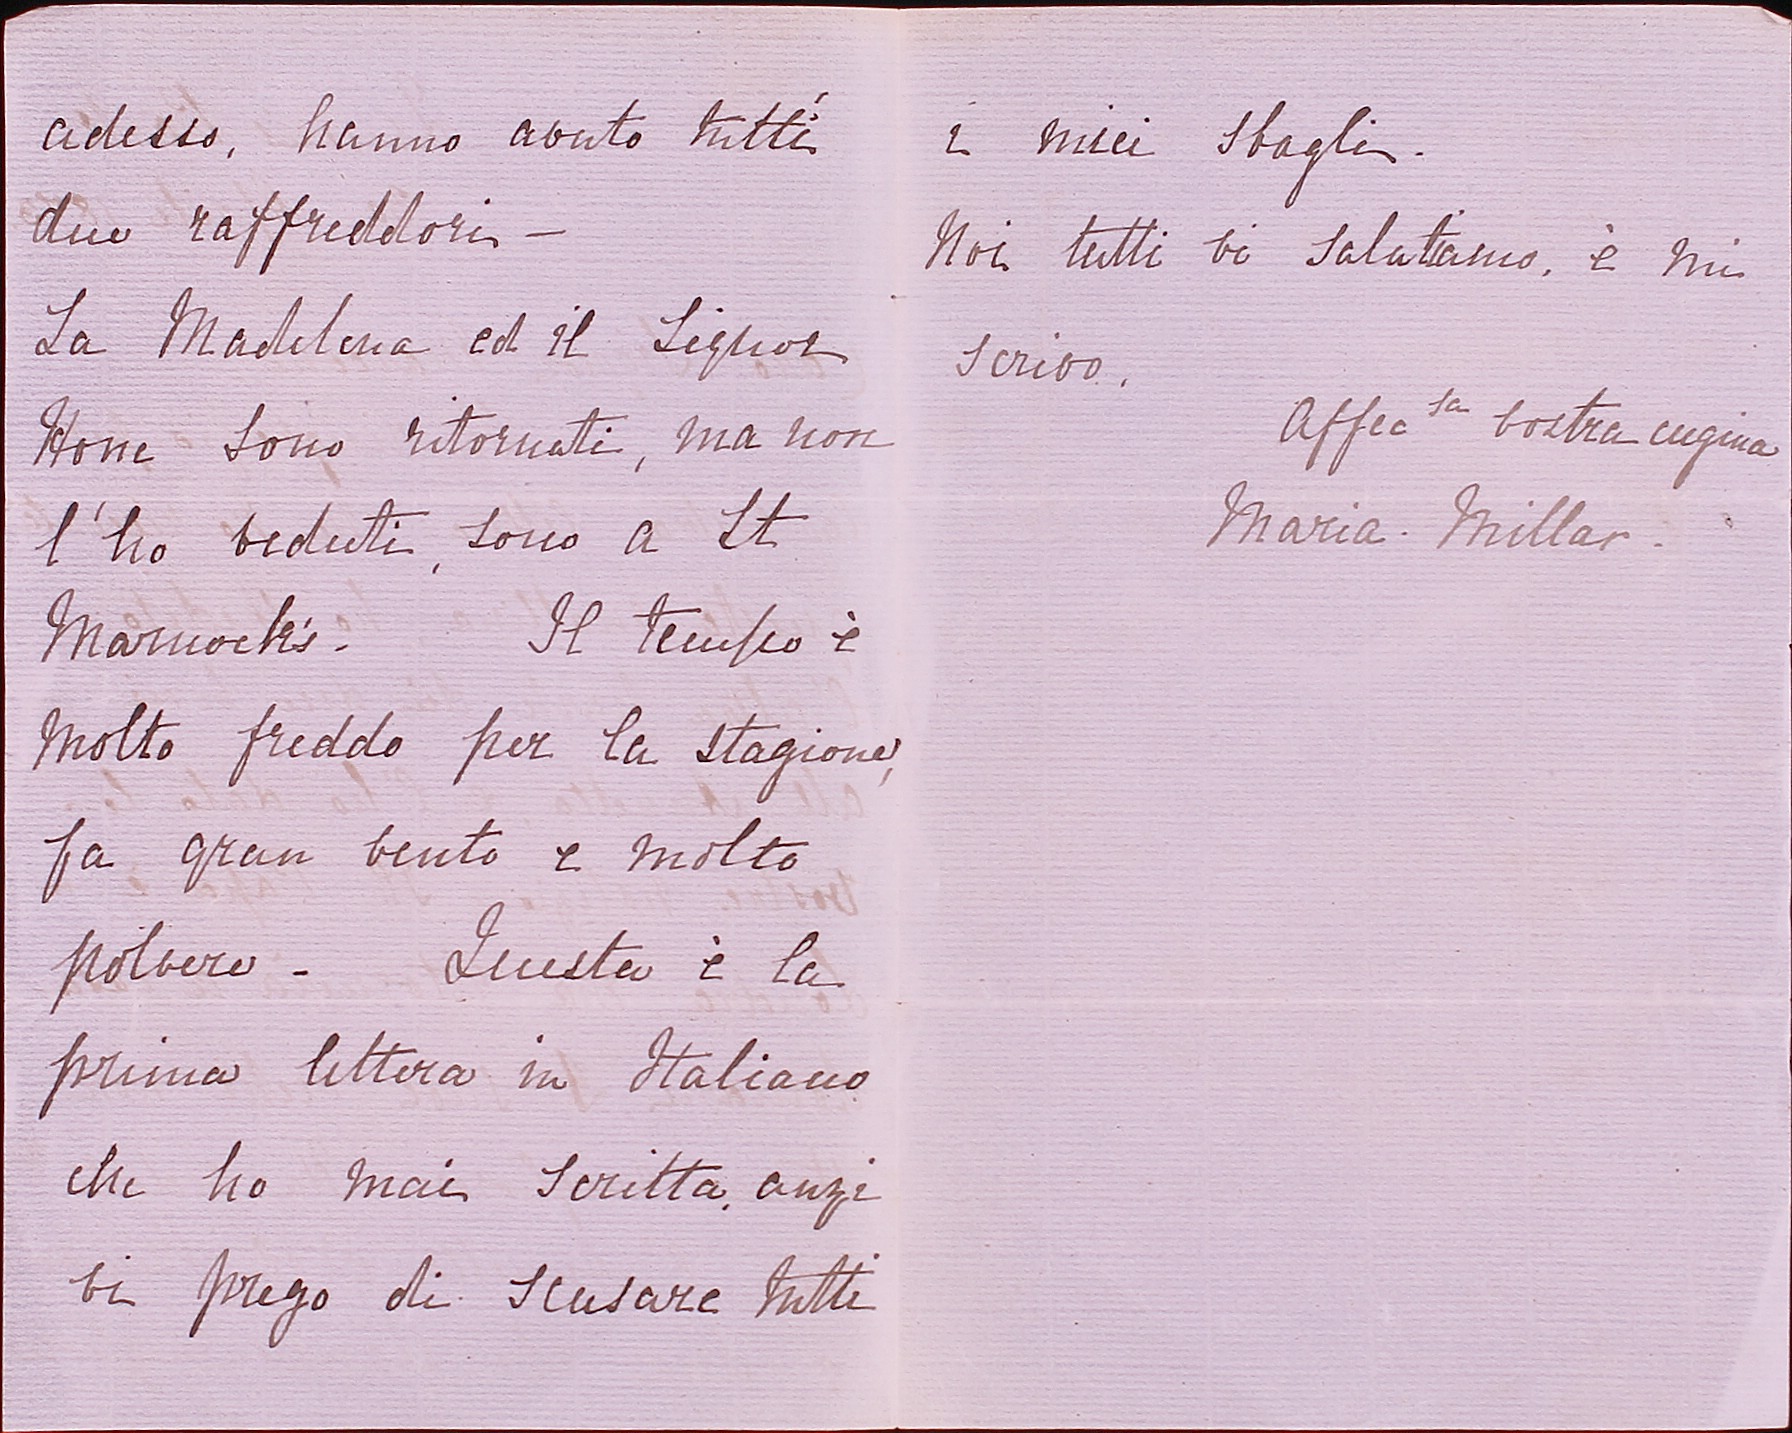 adesso, hanno avuto tutti
due raffreddori –
La Madelena ed il Signor
Hone sono ritornati, ma non
l'ho veduti, sono a St
Marnock's. Il tempo è
molto freddo per la stagione,
fa gran vento e molto
polvere - Questa è la
prima lettera in Italiano
che ho mai scritta, anzi
vi prego di scusare tutti
i miei sbagli.
Noi tutti vi salutiamo, è mi
scrivo,
Affec sa vostra cugina
Maria. Millar.